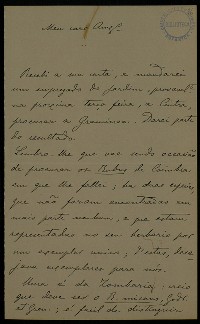 Meu caro Amgº.
Recebi a sua carta, e mandarei
um empregado do Jardim, provavelᵗᵉ
na proxima terça feira, a Cintra,
procurar a Graminea. Darei parte
do resultado.
Lembro-lhe que vae sendo occasião
de procurar os Rubus de Coimbra
em que lhe fallei; ha duas especies
que não foram encontradas em
mais parte nenhuma, e que estam
representadas no seu herbario por
um exemplar unico; d'estas, dese
java exemplares para nós.
Uma é da Zombaria: creio
que deve ser o R. micans, Godr.
et Gren.; é facil de distinguir